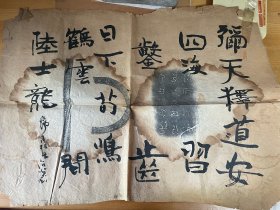 彌天釋道安
四海習
鑿齒
日下荀鳴
鶴雲間
陸士龍